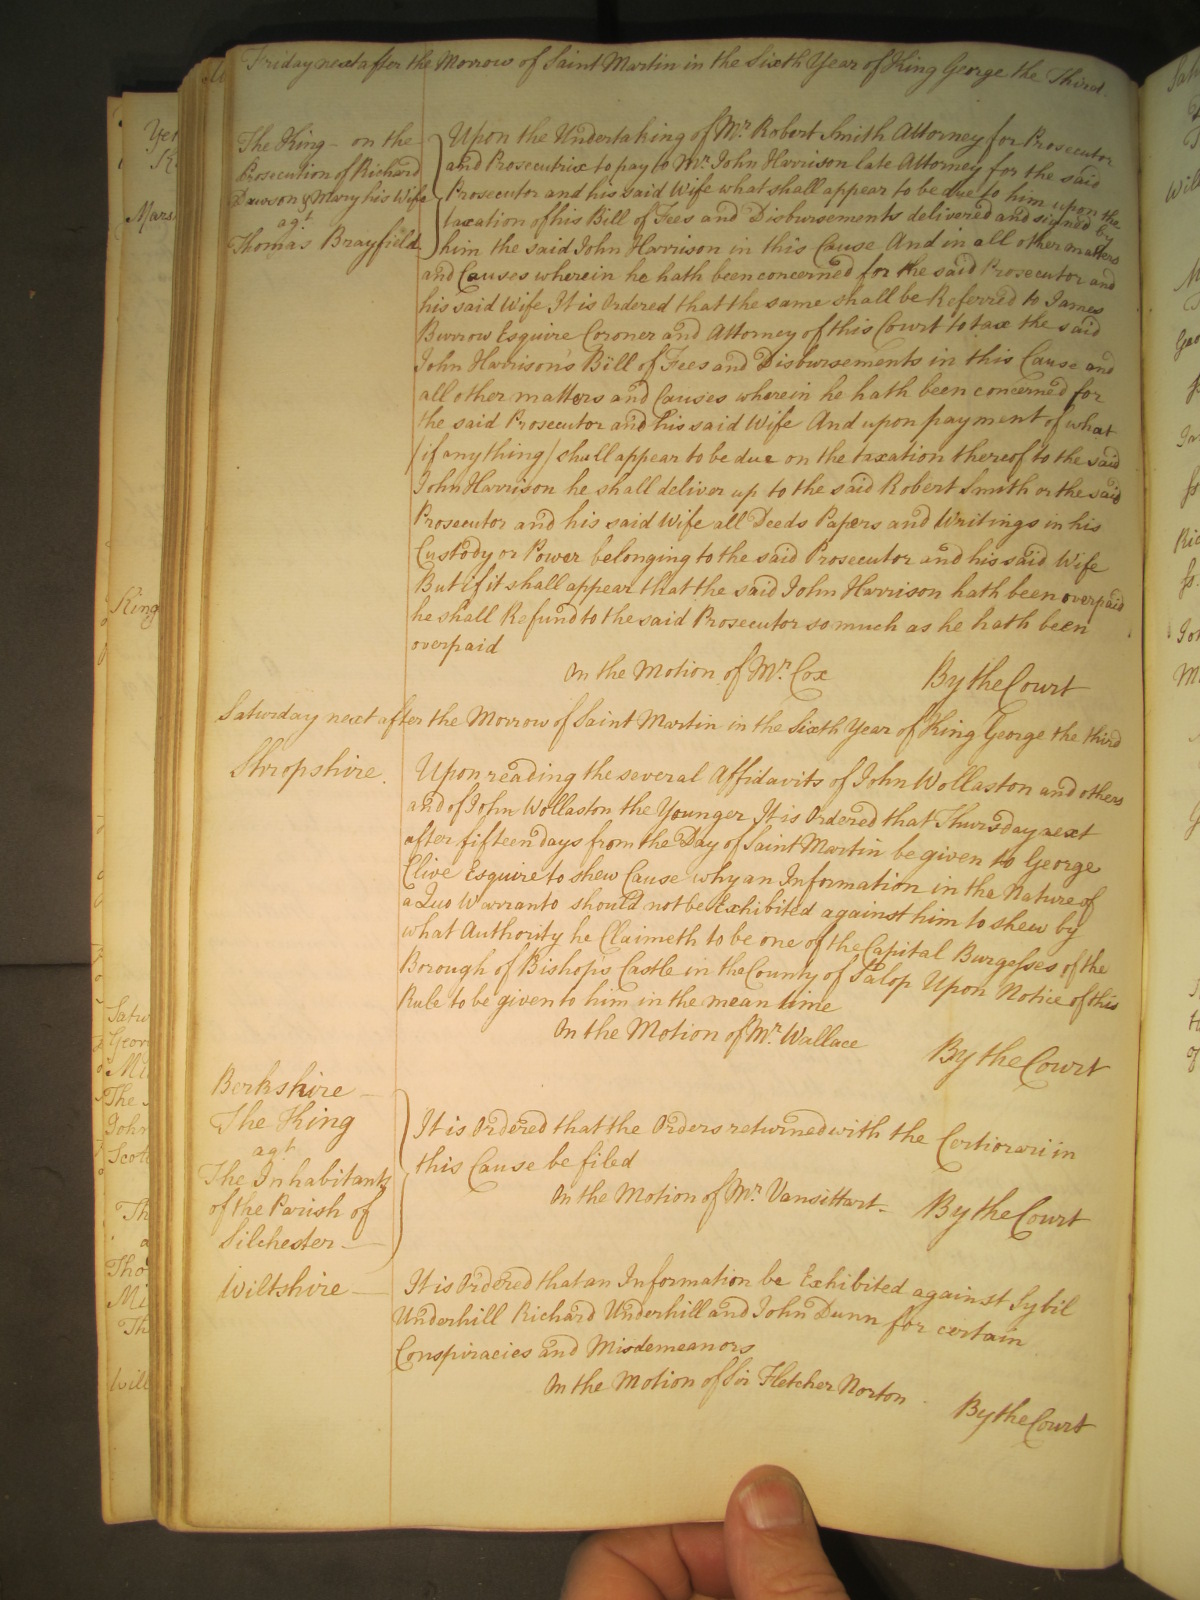 Friday next after the Morrow of Saint Martin in the Sixth Year of King George the Third.
The King - on the
Prosecution of Richard
Dawson & Mary his Wife
agt
Thomas Brayfield
Upon the Undertaking of Mr. Robert Smith Attorney for Prosecutor
and Prosecutrix to pay to Mr. John Harrison late Attorney for the said
Prosecutor and his said Wife what shall appear to be due to him upon the
taxation of his Bill of Fees and Disbursements delivered and signed by
him the said John Harrison in this Cause And in all other matters
and Causes wherein he hath been concerned for the said Prosecutor and
his said Wife It is Ordered that the same shall be Referred to James
Burrow Esquire Coroner and Attorney of this Court to tax the said
John Harrison's Bill of Fees and Disbursements in this Cause and
all other matters and Causes wherein he hath been concerned for
the said Prosecutor and his said Wife And upon payment of what
(if any thing) shall appear to be due on the taxation thereof to the said
John Harrison he shall deliver up to the said Robert Smith or the said
Prosecutor and his said Wife all Deeds Papers and Writings in his
Custody or Power belonging to the said Prosecutor and his said Wife
But if it shall appear that the said John Harrison hath been overpaid
he shall Refund to the said Prosecutor so much as he hath been
overpaid
On the Motion of Mr. Cox By the Court
Saturday next after the Morrow of Saint Martin in the Sixth Year of King George the third
Shropshire.
Upon reading the several Affidavits of John Wollaston and others
and of John Wollaston the Younger It is Ordered that Thursday next
after fifteen days from the Day of Saint Martin be given to George
Clive Esquire to shew Cause why an Information in the Nature of
a Quo Warranto should not be Exhibited against him to shew by
what Authority he Claimeth to be one of the Capital Burgesses of the
Borough of Bishop's Castle in the County of Salop Upon Notice of this
Rule to be given to him in the mean time
On the Motion of Mr. Wallace By the Court
Berkshire -
The King
agt
The Inhabitants
of the Parish of
Silchester -
It is Ordered that the Orders returned with the Certiorari in
this Cause be filed
On the Motion of Mr. Vansittart - By the Court
Wiltshire -
It is Ordered that an Information be Exhibited against Sybil
Underhill Richard Underhill and John Dunn for certain
Conspiracies and Misdemeanors
On the Motion of Sir Fletcher Norton. By the Court